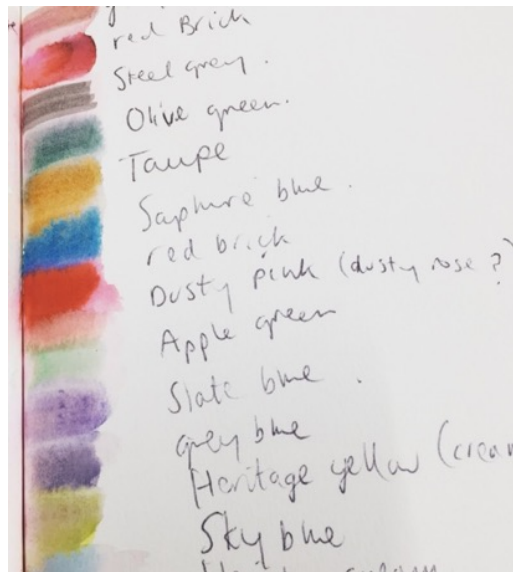 red Brick
Steel grey.
Olive green.
Taupe
Saphire blue.
red brick
Dusty pink (dusty rose?)
Apple green
Slate blue.
grey blue
Heritage yellow (cream
Sky blue